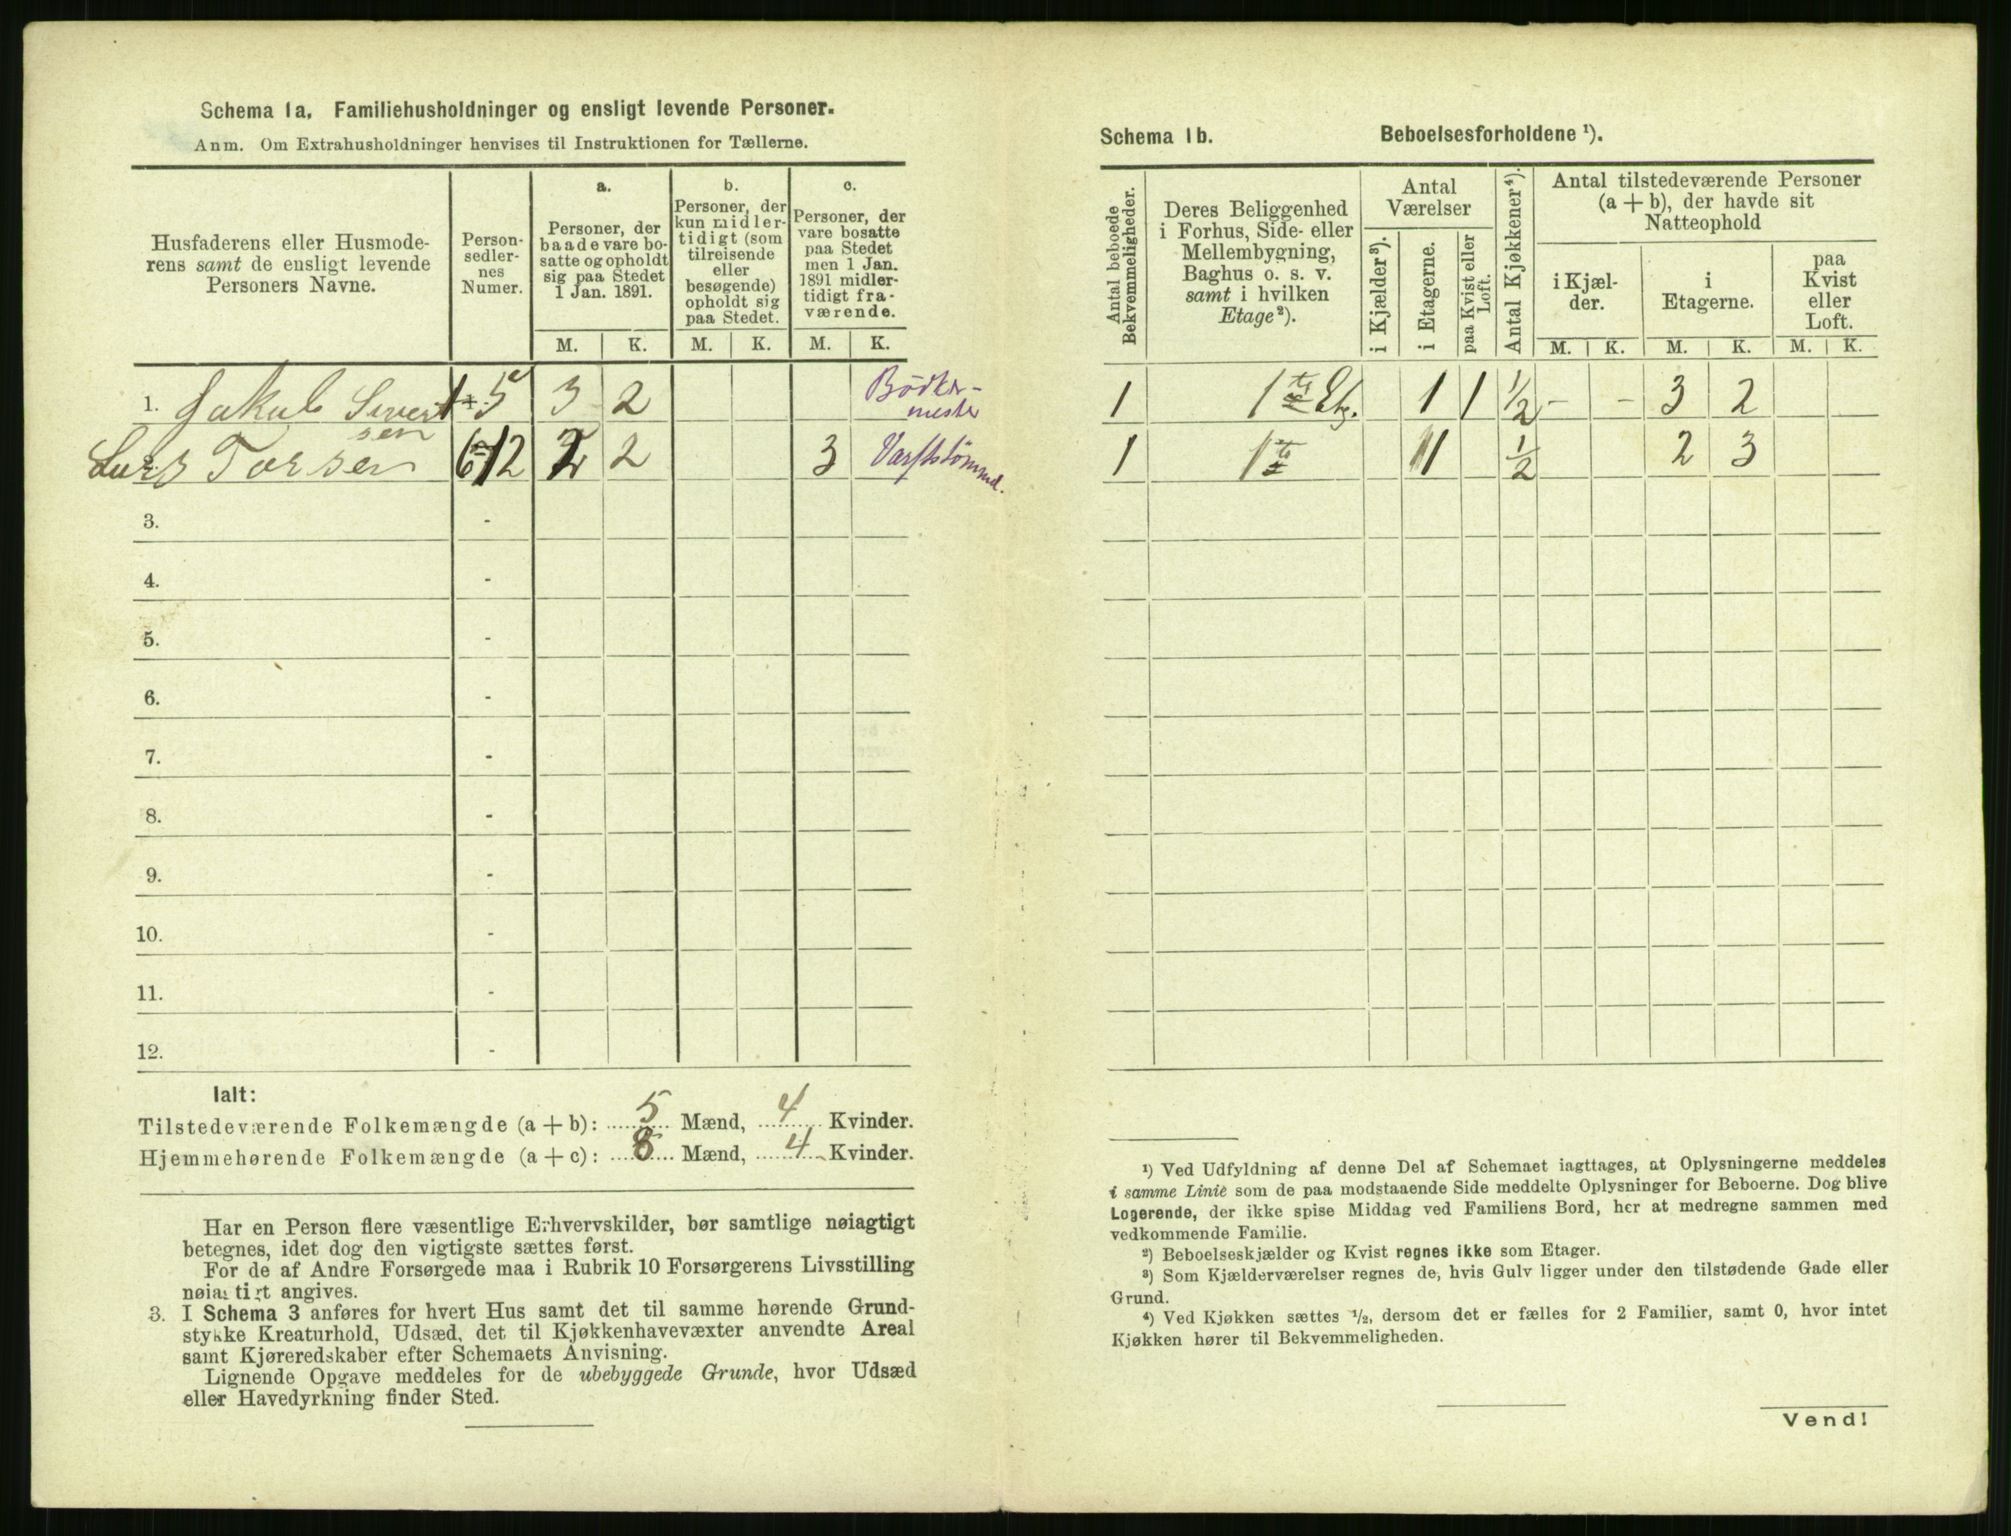 Schema 1a. Familiehusholdninger og ensligt levende Personer.
Anm. Om Extrahusholdninger henvises til Instruktionen for Tællerne.
Husfaderens eller Husmode-
rens samt de ensligt levende
Personers Navne.
Person-
sedler-
nes
Numer.
a.
Personer, der
baade vare bo-
satte og opholdt
sig paa Stedet
1 Jan. 1891.
b.
Personer, der
kun midler-
tidigt (som
tilreisende
eller
besøgende)
opholdt sig
paa Stedet.
c.
Personer, der
vare bosatte
paa Stedet
men 1 Jan.
1891 midler-
tidigt fra-
værende.
M. K. M. K. M. K.
1. Jakob Sivert 1 - 5 3 2 Bødker-
sen mester
Lars Torsen 6-12 2 2 3
3. -
4. -
5. -
6. -
7. -
8. -
9. -
10. -
11. -
12. -
Ialt:
Tilstedeværende Folkemængde (a + b): 5 Mænd, 4 Kvinder.
Hjemmehørende Folkemængde (a + c): 8 Mænd, 4 Kvinder.
Har en Person flere væsentlige Erhvervskilder, bør samtlige nøiagtigt
betegnes, idet dog den vigtigste sættes først.
For de af Andre Forsørgede maa i Rubrik 10 Forsørgerens Livsstilling
nøiagtigt angives.
3. I Schema 3 anføres for hvert Hus samt det til samme hørende Grund-
stykke Kreaturhold, Udsæd, det til Kjøkkenhavevæxter anvendte Areal
samt Kjøreredskaber efter Schemaets Anvisning.
Lignende Opgave meddeles for de ubebyggede Grunde, hvor Udsæd
eller Havedyrkning finder Sted.
Schema 1b. Beboelsesforholdene ¹).
Antal beboede
Bekvemmeligheder.
Deres Beliggenhed
i Forhus, Side- eller
Mellembygning,
Baghus o. s. v.
samt i hvilken
Etage²).
Antal
Værelser
i Kjælder³).
i Etagerne.
paa Kvist eller
Loft.
Antal Kjøkkener⁴).
Antal tilstedeværende Personer
(a + b), der havde sit
Natteophold
i Kjæl-
der.
i
Etagerne.
paa
Kvist
eller
Loft.
M. K. M. K. M. K.
1 1te Etg. 1 1 ½ - - 3 2
1 1te ½ 2 3
¹) Ved Udfyldning af denne Del af Schemaet iagttages, at Oplysningerne meddeles
i samme Linie som de paa modstaaende Side meddelte Oplysninger for Beboerne. Dog blive
Logerende, der ikke spise Middag ved Familiens Bord, her at medregne sammen med
vedkommende Familie.
²) Beboelseskjælder og Kvist regnes ikke som Etager.
³) Som Kjælderværelser regnes de, hvis Gulv ligger under den tilstødende Gade eller
Grund.
⁴) Ved Kjøkken sættes ½, dersom det er fælles for 2 Familier, samt 0, hvor intet
Kjøkken hører til Bekvemmeligheden.
Vend!